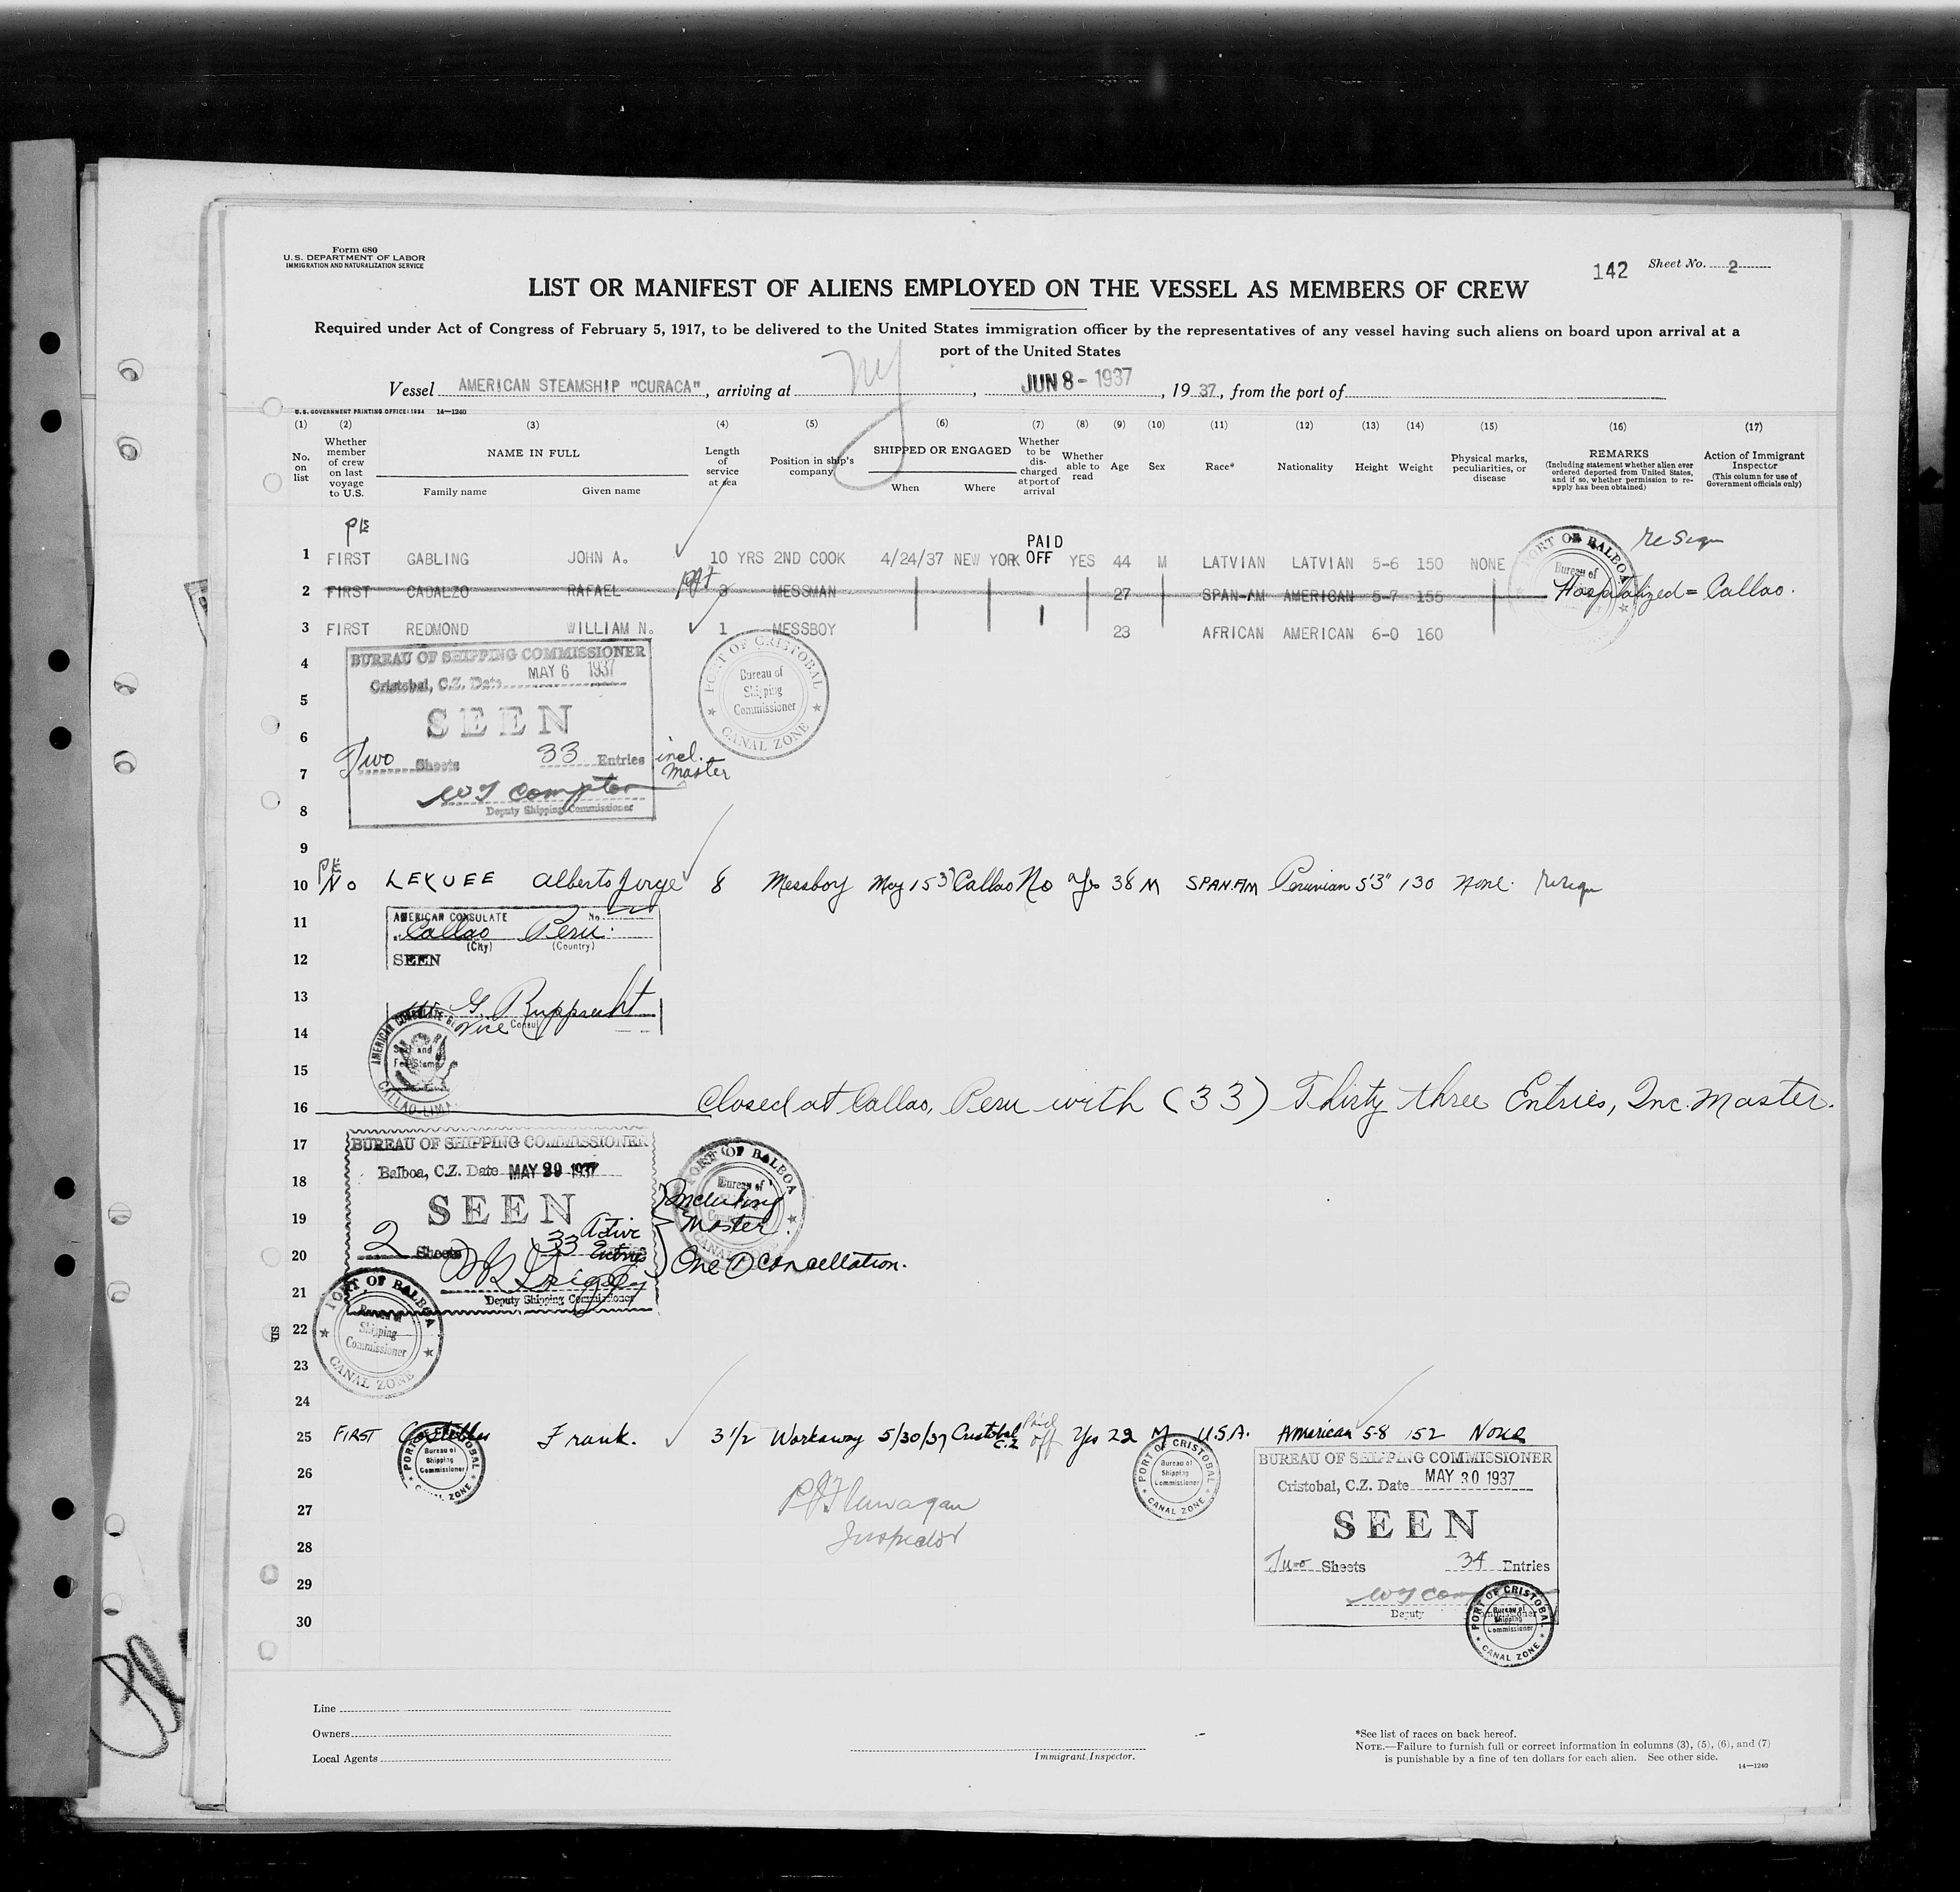 Form 680
U.S. DEPARTMENT OF LABOR
IMMIGRATION AND NATURALIZATION SERVICE
142 Sheet No. 2
LIST OR MANIFEST OF ALIENS EMPLOYED ON THE VESSEL AS MEMBERS OF CREW
Required under Act of Congress of February 5, 1917, to be delivered to the United States immigration officer by the representatives of any vessel having such aliens on board upon arrival at a
port of the United States
Vessel AMERICAN STEAMSHIP "CURACA", arriving at NY, JUN 8 - 1937, 19 37, from the port of
U.S. GOVERNMENT PRINTING OFFICE: 1934 14—1240
(1) (2) (3) (4) (5) (6) (7) (8) (9) (10) (11) (12) (13) (14) (15) (16) (17)
No. on list
Whether member of crew on last voyage to U.S.
NAME IN FULL
Family name Given name
Length of service at sea
Position in ship's company
SHIPPED OR ENGAGED
When Where
Whether to be discharged at port of arrival
Whether able to read
Age
Sex
Race*
Nationality
Height
Weight
Physical marks, peculiarities, or disease
REMARKS
(Including statement whether alien ever ordered deported from United States, and if so, whether permission to reapply has been obtained)
Action of Immigrant Inspector
(This column for use of Government officials only)
1 FIRST GABLING JOHN A. 10 YRS 2ND COOK 4/24/37 NEW YORK PAID OFF YES 44 M LATVIAN LATVIAN 5-6 150 NONE
2 FIRST CADALZO RAFAEL 3 MESSMAN 27 SPAN-AM AMERICAN 5-7 155 Hospitalized = Callao.
3 FIRST REDMOND WILLIAM N. 1 MESSBOY 23 AFRICAN AMERICAN 6-0 160
PORT OF BALBOA
Bureau of
4
BUREAU OF SHIPPING COMMISSIONER
Cristobal, C.Z. Date MAY 6 1937
SEEN
Two Sheets 33 Entries incl. Master
W T Compton
Deputy Shipping Commissioner
PORT OF CRISTOBAL
Bureau of
Shipping
Commissioner
CANAL ZONE
5
6
7
8
9
10 No LEKUEE Alberto Jorge 8 Messboy May 15 37 Callao No Yes 38 M SPAN.AM Peruvian 5'3" 130 None.
11
AMERICAN CONSULATE No.
Callao Peru.
(City) (Country)
12 SEEN
13 G. Rupprecht
14 Vice Consul
AMERICAN CONSULATE
CALLAO-LIMA
15
16 Closed at Callao, Peru with (33) Thirty three Entries, Inc. Master.
17
BUREAU OF SHIPPING COMMISSIONER
Balboa, C.Z. Date MAY 29 1937
SEEN
2 Sheets 33 Active Entries
Including Master.
One (1) Cancellation.
Deputy Shipping Commissioner
PORT OF BALBOA
Bureau of
CANAL ZONE
18
19
20
21
PORT OF BALBOA
Shipping
Commissioner
CANAL ZONE
22
23
24
25 FIRST Frank. 3 1/2 Workaway 5/30/37 Cristobal C.Z. Paid off Yes 22 M U.S.A. American 5-8 152 None
PORT OF CRISTOBAL
Bureau of
Shipping
Commissioner
CANAL ZONE
26
27
28
Inspector
PORT OF CRISTOBAL
Bureau of
Shipping
Commissioner
CANAL ZONE
BUREAU OF SHIPPING COMMISSIONER
Cristobal, C.Z. Date MAY 30 1937
SEEN
Two Sheets 34 Entries
Deputy
PORT OF CRISTOBAL
Bureau of
Shipping
Commissioner
CANAL ZONE
29
30
Line
Owners
Local Agents
Immigrant Inspector.
*See list of races on back hereof.
NOTE.—Failure to furnish full or correct information in columns (3), (5), (6), and (7)
is punishable by a fine of ten dollars for each alien. See other side.
14—1240